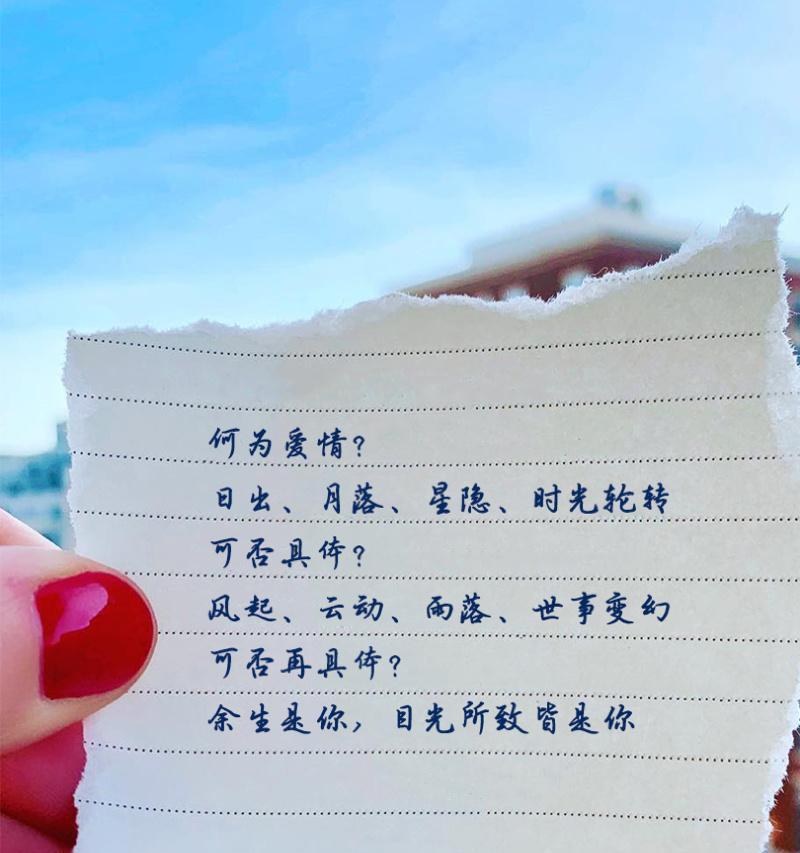 何为爱情？
日出、月落、星隐、时光轮转
可否具体？
风起、云动、雨落、世事变幻
可否再具体？
余生是你，目光所致皆是你